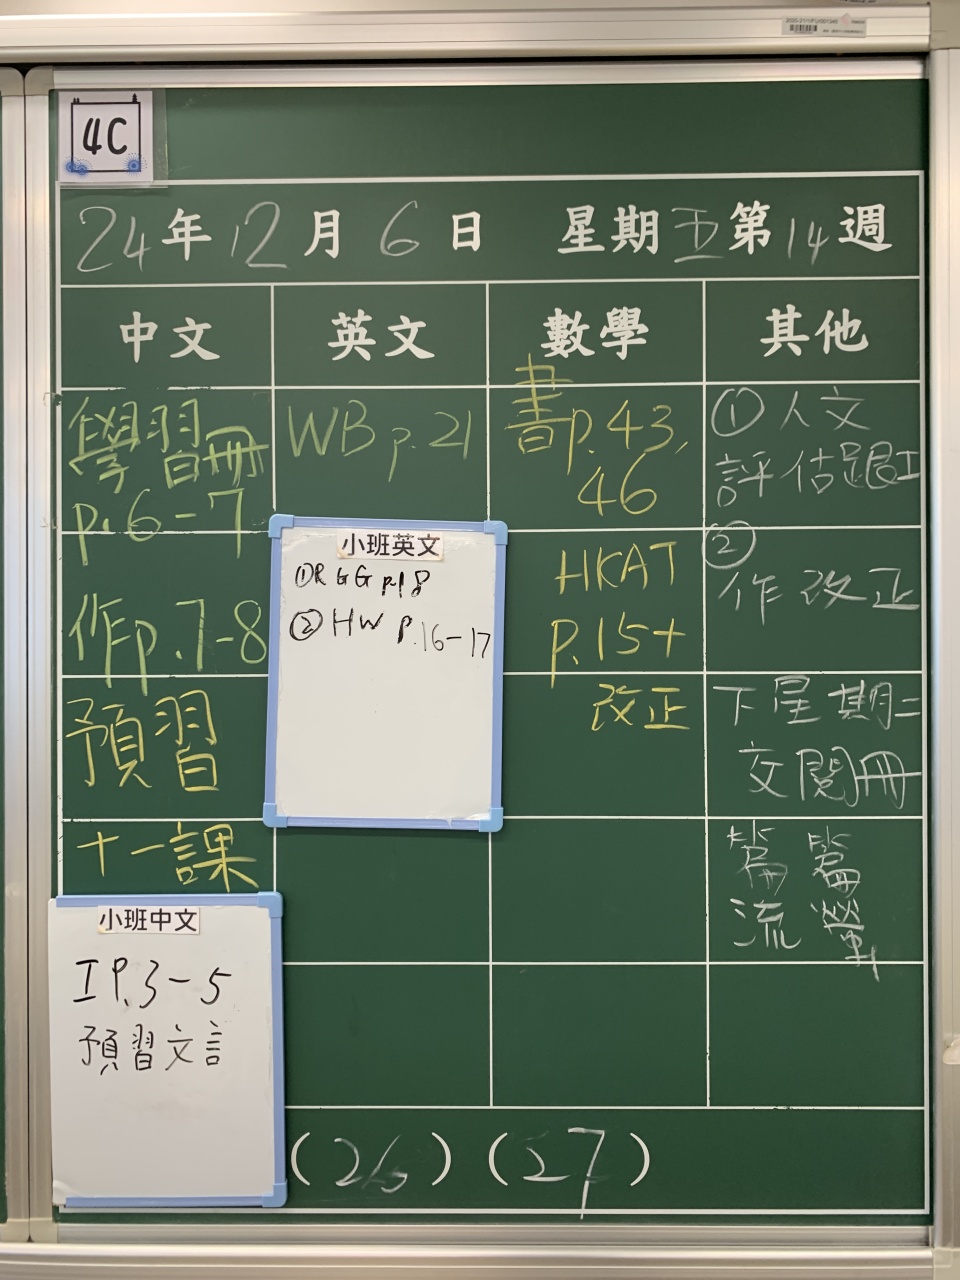 4C
24年12月6日 星期五第14週
中文 英文 數學 其他
學習冊
p.6-7
作p.7-8
預習
十一課
WB p.21
書p.43,
46
HKAT
p.15+
改正
①人文
評估跟工
②
作改正
下星期二
交閱冊
篇篇
流螢
小班英文
①R GG p18
②HW P.16-17
小班中文
工P.3-5
預習文言
(26)(27)